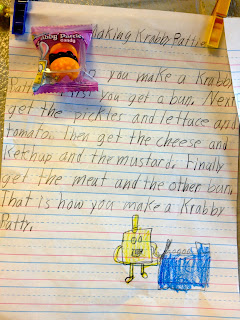 Making Krabby Pattie
Krabby Patties
candy
you make a Krabby
you get a bun. Next
get the pickles and lettace and
tomato. Then get the cheese and
Ketchup and the mustard. Finally
get the meat and the other bun.
That is how you make a Krabby
Patty.